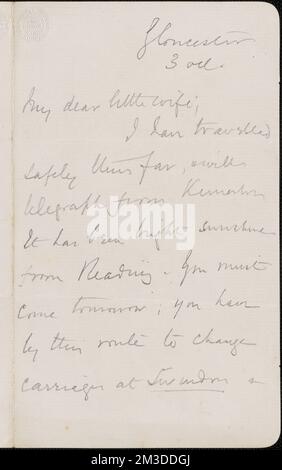 Gloucester
3 Oct.
My dear little wife;
I have travelled
safely thus far, & will
telegraph from Kemerton
It has been bright sunshine
from Reading. You must
come tomorrow; you have
by this route to change
carriages at Swindon &
alamy
Image ID: 2M3DDGJ
www.alamy.com